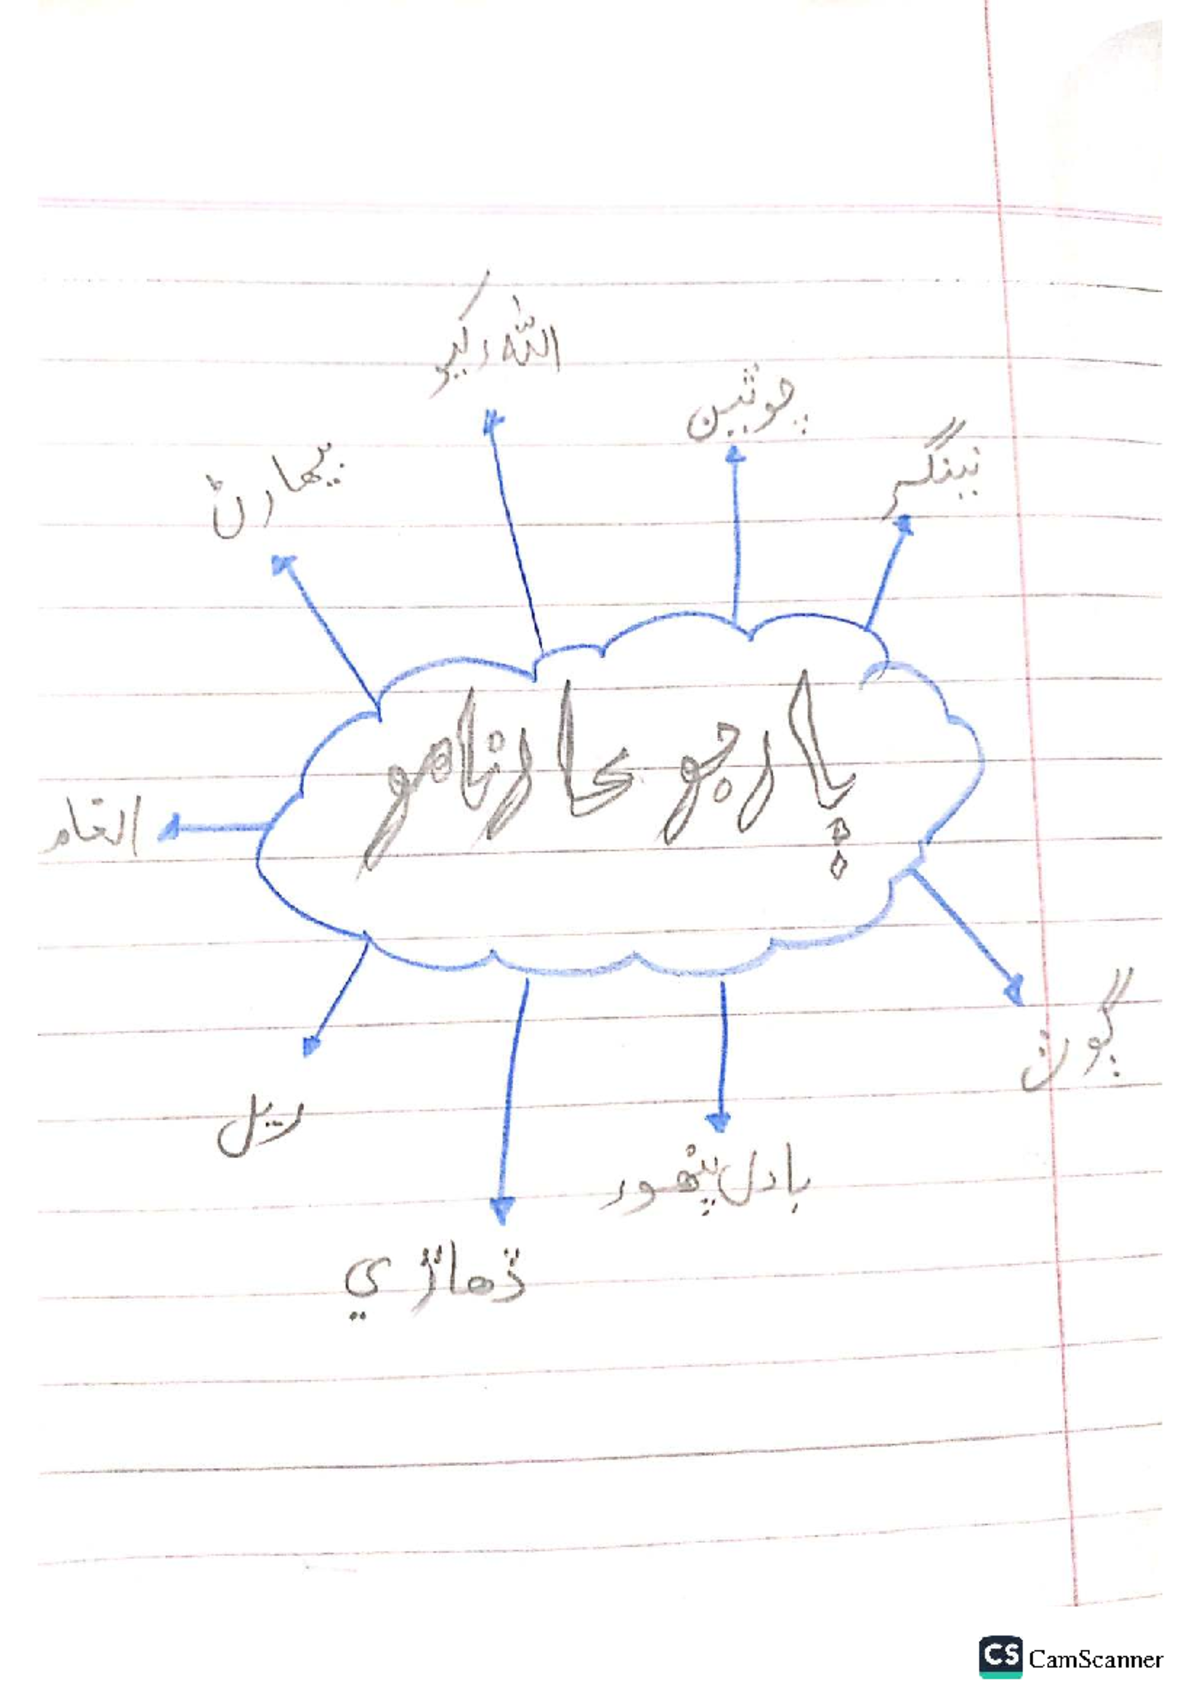 الله رکيو
چوٿين
نينگر
پهارڻ
پار جو ڪارنامو
انعام
ڳوٺ
ريل
بادل پنهور
ڌهاڙي
CS CamScanner